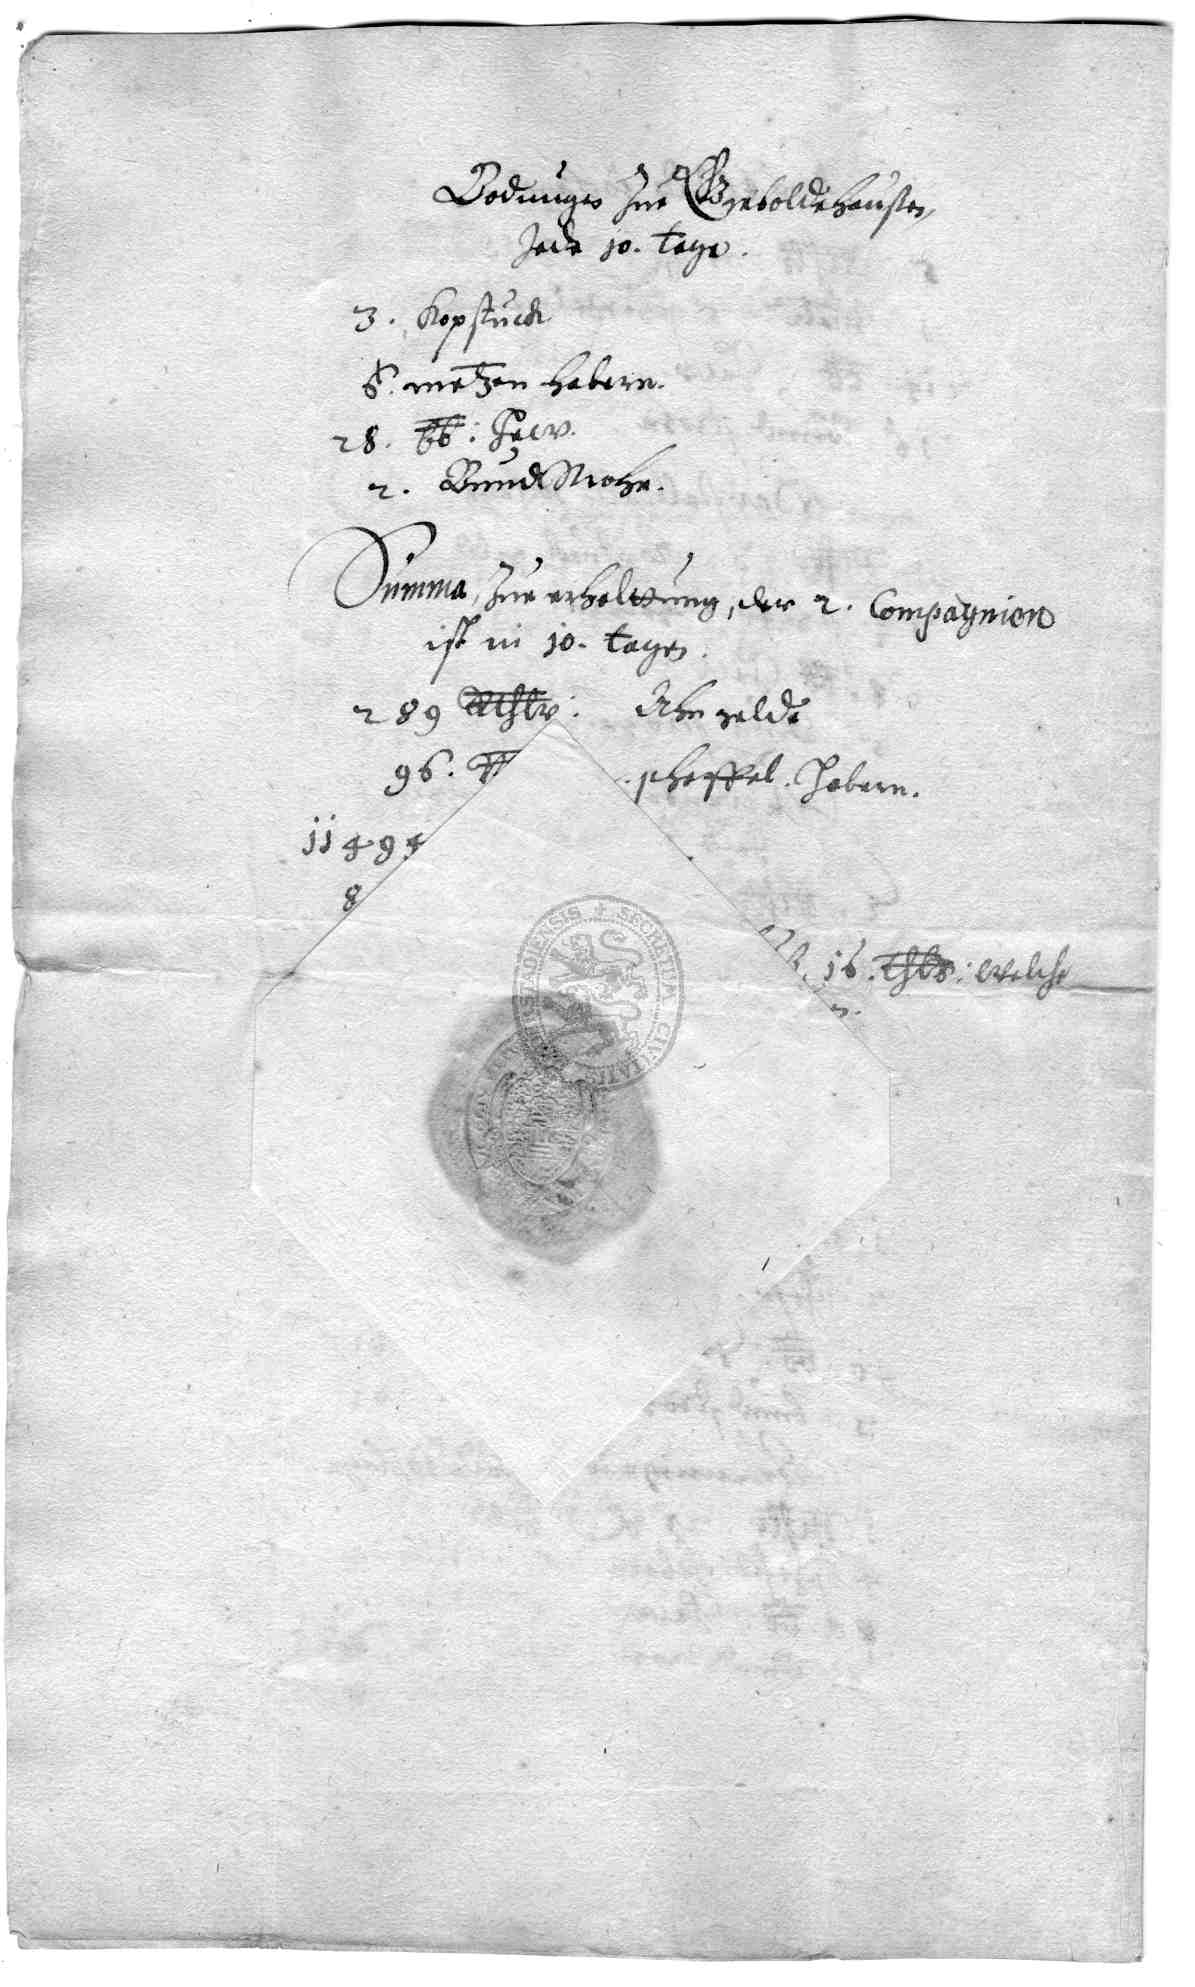 Bodungen zue Gieboldehausen,
Jede 10. tage.
3. Kopstück
6. metzen habern.
28. lb: Hew.
2. Bundt Strohe.
Summa, zue erhalttung, der 2. Compagnien
ist in 10. tagen.
289 Rthlr: Ahn gelde
96. scheffel. Habern.
11494
8
16. thlr: welche
SECRETUM CIVITATIS